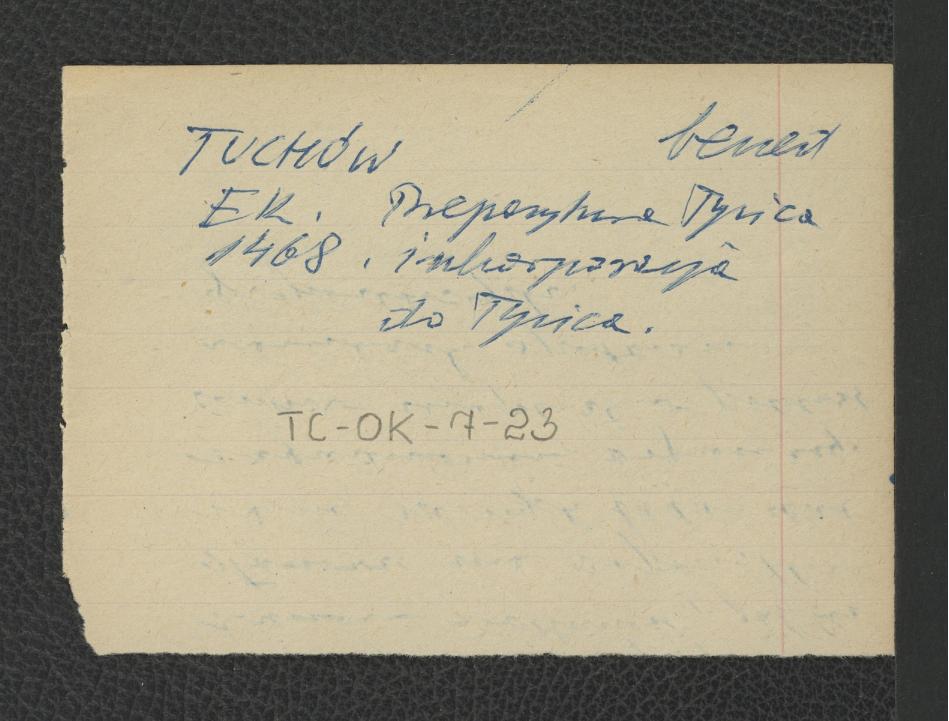 TUCHÓW bened
EK. Prepozytura Tyńca
1468. inkorporacja
do Tyńca.
TC-OK-7-23